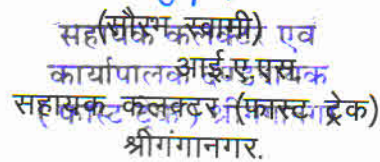 (सौरभ स्वामी)
सहायक कलक्टर एवं
आई.ए.एस.
कार्यापालक
सहायक कलक्टर (फास्ट ट्रेक)
श्रीगंगानगर.